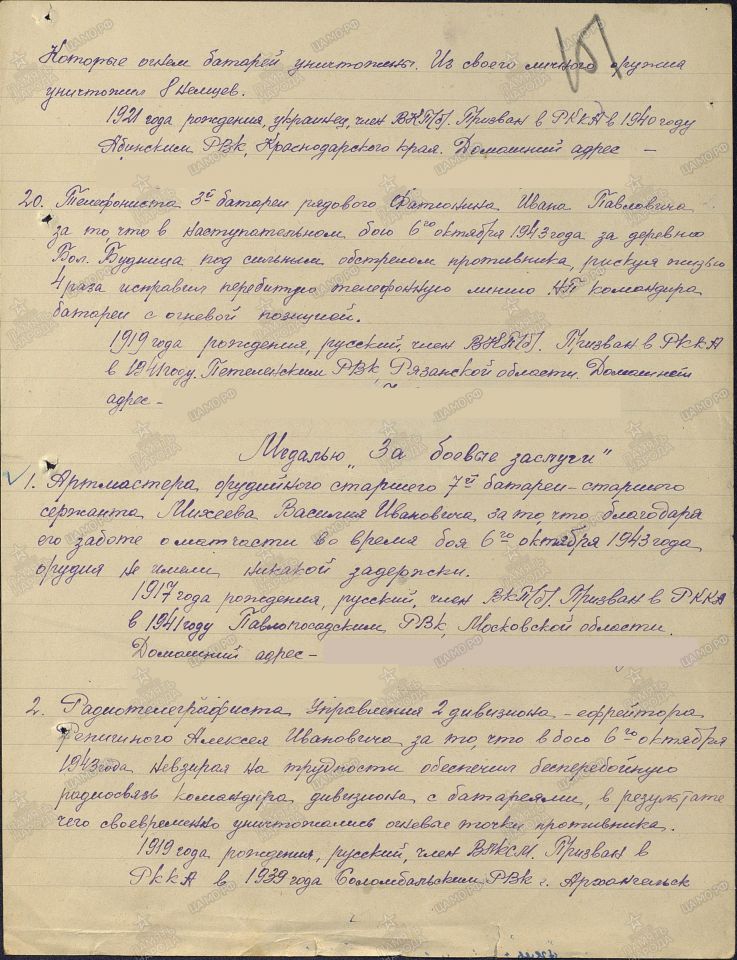 Которые огнем батарей уничтожены. Из своего личного оружия
уничтожил 8 немцев.
1921 года рождения, украинец, член ВКП(б). Призван в РККА в 1940 году
Абинским РВК, Краснодарского края. Домашний адрес –
20. Телефониста 3й батареи рядового Ивана Павловича
за то, что в наступательном бою 6го октября 1943 года за деревню
Бол. Будница под сильным обстрелом противника, рискуя жизнью
4 раза исправил перебитую телефонную линию НП командира
батареи с огневой позицией.
1919 года рождения, русский, член ВКП(б). Призван в РККА
в 1941 году. Петелинским РВК, Рязанской области. Домашний
адрес –
Медалью „За боевые заслуги"
1. Артмастера орудийного старшего 7й батареи – старшего
сержанта Михеева Василия Ивановича, за то, что благодаря
его заботе о матчасти во время боя 6го октября 1943 года
орудия не имели никакой задержки.
1917 года рождения, русский, член ВКП(б). Призван в РККА
в 1941 году Павлопосадским РВК, Московской области.
Домашний адрес –
2. Радиотелеграфиста Управления 2 дивизиона – ефрейтора
Алексея Ивановича за то, что в бою 6го октября
1943 года невзирая на трудности обеспечил бесперебойную
радиосвязь командира дивизиона с батареями, в результате
чего своевременно уничтожались огневые точки противника.
1919 года рождения, русский, член ВЛКСМ. Призван в
РККА в 1939 года Соломбальским РВК г. Архангельск